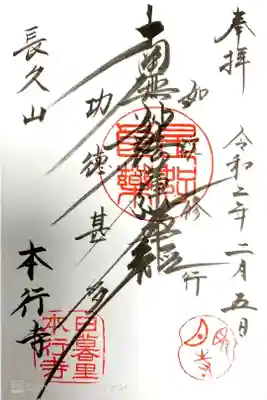 奉拝
令和二年二月五日
如説修行
南無妙法蓮華経
功徳甚多
長久山
本行寺
日暮里
本行寺
月見寺